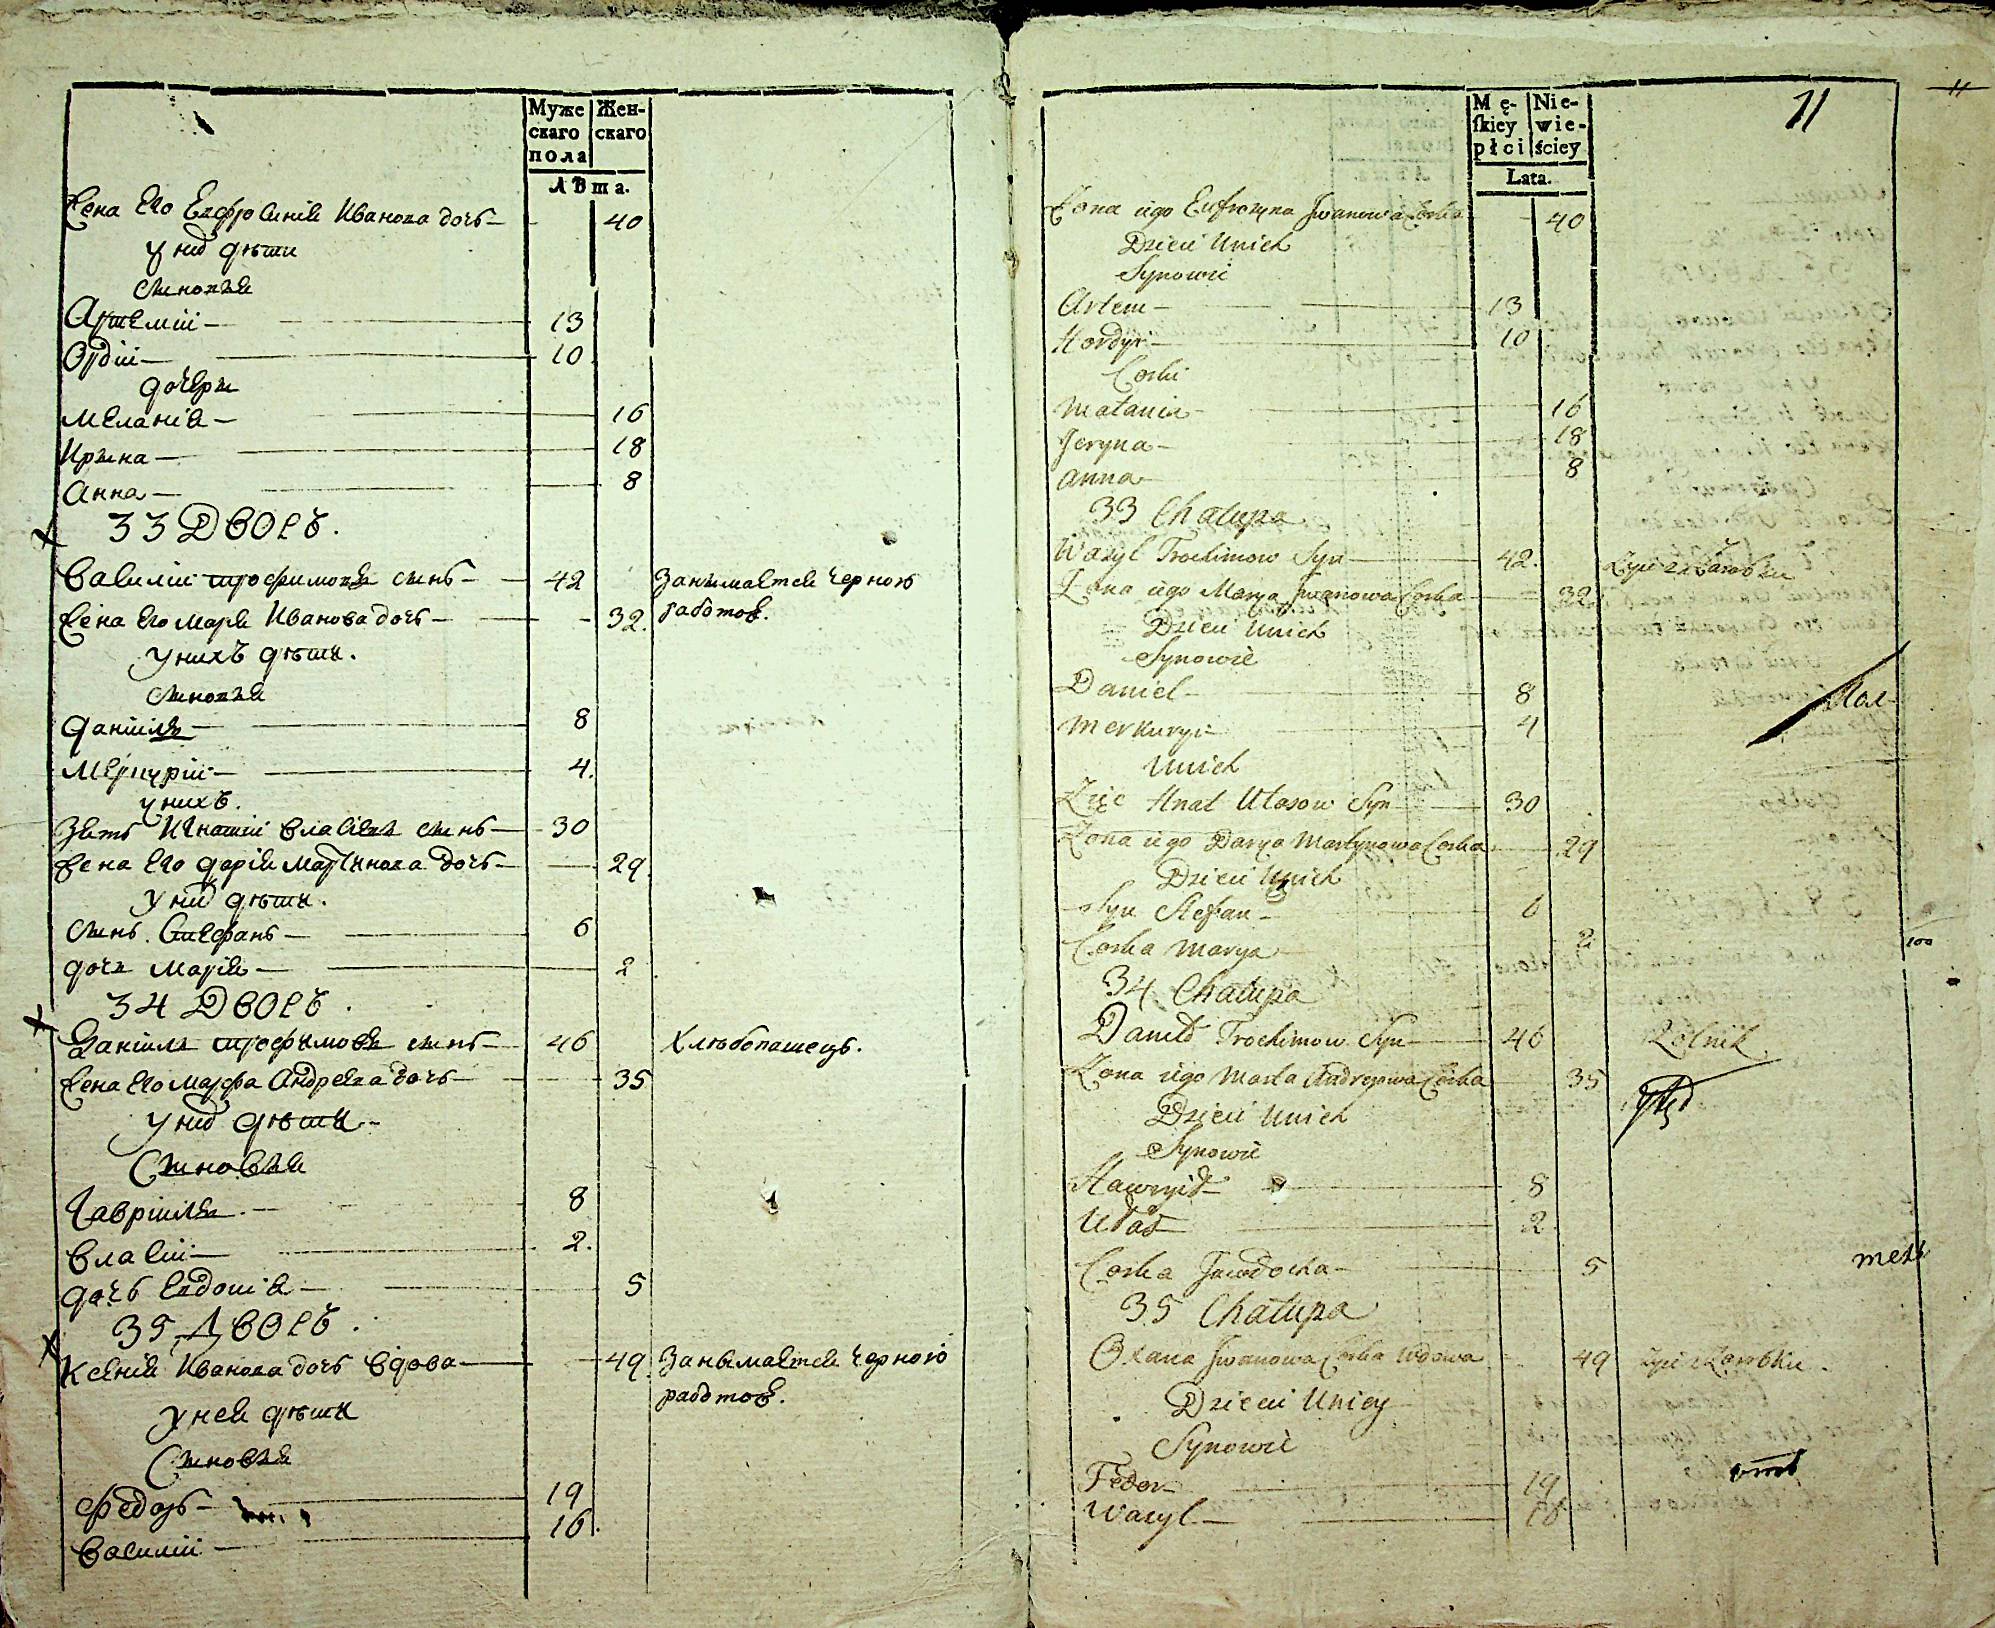 Муже Жен-
скаго скаго
пола
Лѣта.
Жена Его Евфросинія Иванова дочь 40
у них дѣти
сыновья
Артемій 13
Ордій 10
дочери
Меланія 16
Ирина 18
Анна 8
33 Дворъ.
Василій Трофимовъ сынъ 42 Занимается черною
работою.
Жена Его Марія Иванова дочь 32.
у нихъ дѣти.
сыновья
Даніилъ 8
Меркурій 4.
у нихъ.
Зять Игнатій Власіевъ сынъ 30
Жена Его Дарія Мартинова дочь 29.
у них дѣти.
сынъ Стефанъ 6
дочь Марія 2
34 Дворъ.
Даніилъ Трофимовъ сынъ 46 Хлѣбопашецъ.
Жена Его Марфа Андреева дочь 35
у них дѣти
Сыновья
Гавріилъ 8
Власій 2.
дочь Евдокія 5
35 Дворъ.
Ксенія Иванова дочь вдова 49. Занимается черною
работою.
у ней дѣти
Сыновья
Федоръ 19
Василій 16.
11
11
Mę- Nie-
ſkiey wie-
płci ściey
Lata.
Żona iego Eufrozyna Jwanowa Corka 40
Dzieci Unich
Synowie
Artem 13
Hordyi 10
Corki
Małania 16
Jeryna 18
Anna 8
33 Chałupa
Wasyl Trochimow Syn 42. Żyie z Zarobku
Żona iego Marya Jwanowa Corka 32.
Dzieci Unich
Synowie
Daniel 8
Merkuryi 4
Unich
Zięc Hnat Ułasow Syn 30
Żona iego Darya Martynowa Corka 29
Dzieci Unich
Syn Stefan 6
Corka Marya 2
34 Chałupa
Daniło Trochimow Syn 46 Rolnik
Żona iego Marta Andrejowa Corka 35
Dzieci Unich
Synowie
Hawryło 8
Ułas 2
Corka Jawdocka 5
35 Chałupa
Oxana Jwanowa Corka Wdowa 49 Żyie z Zarobku.
Dzieci Uniey
Synowie
Fedor 19
Wasyl 16